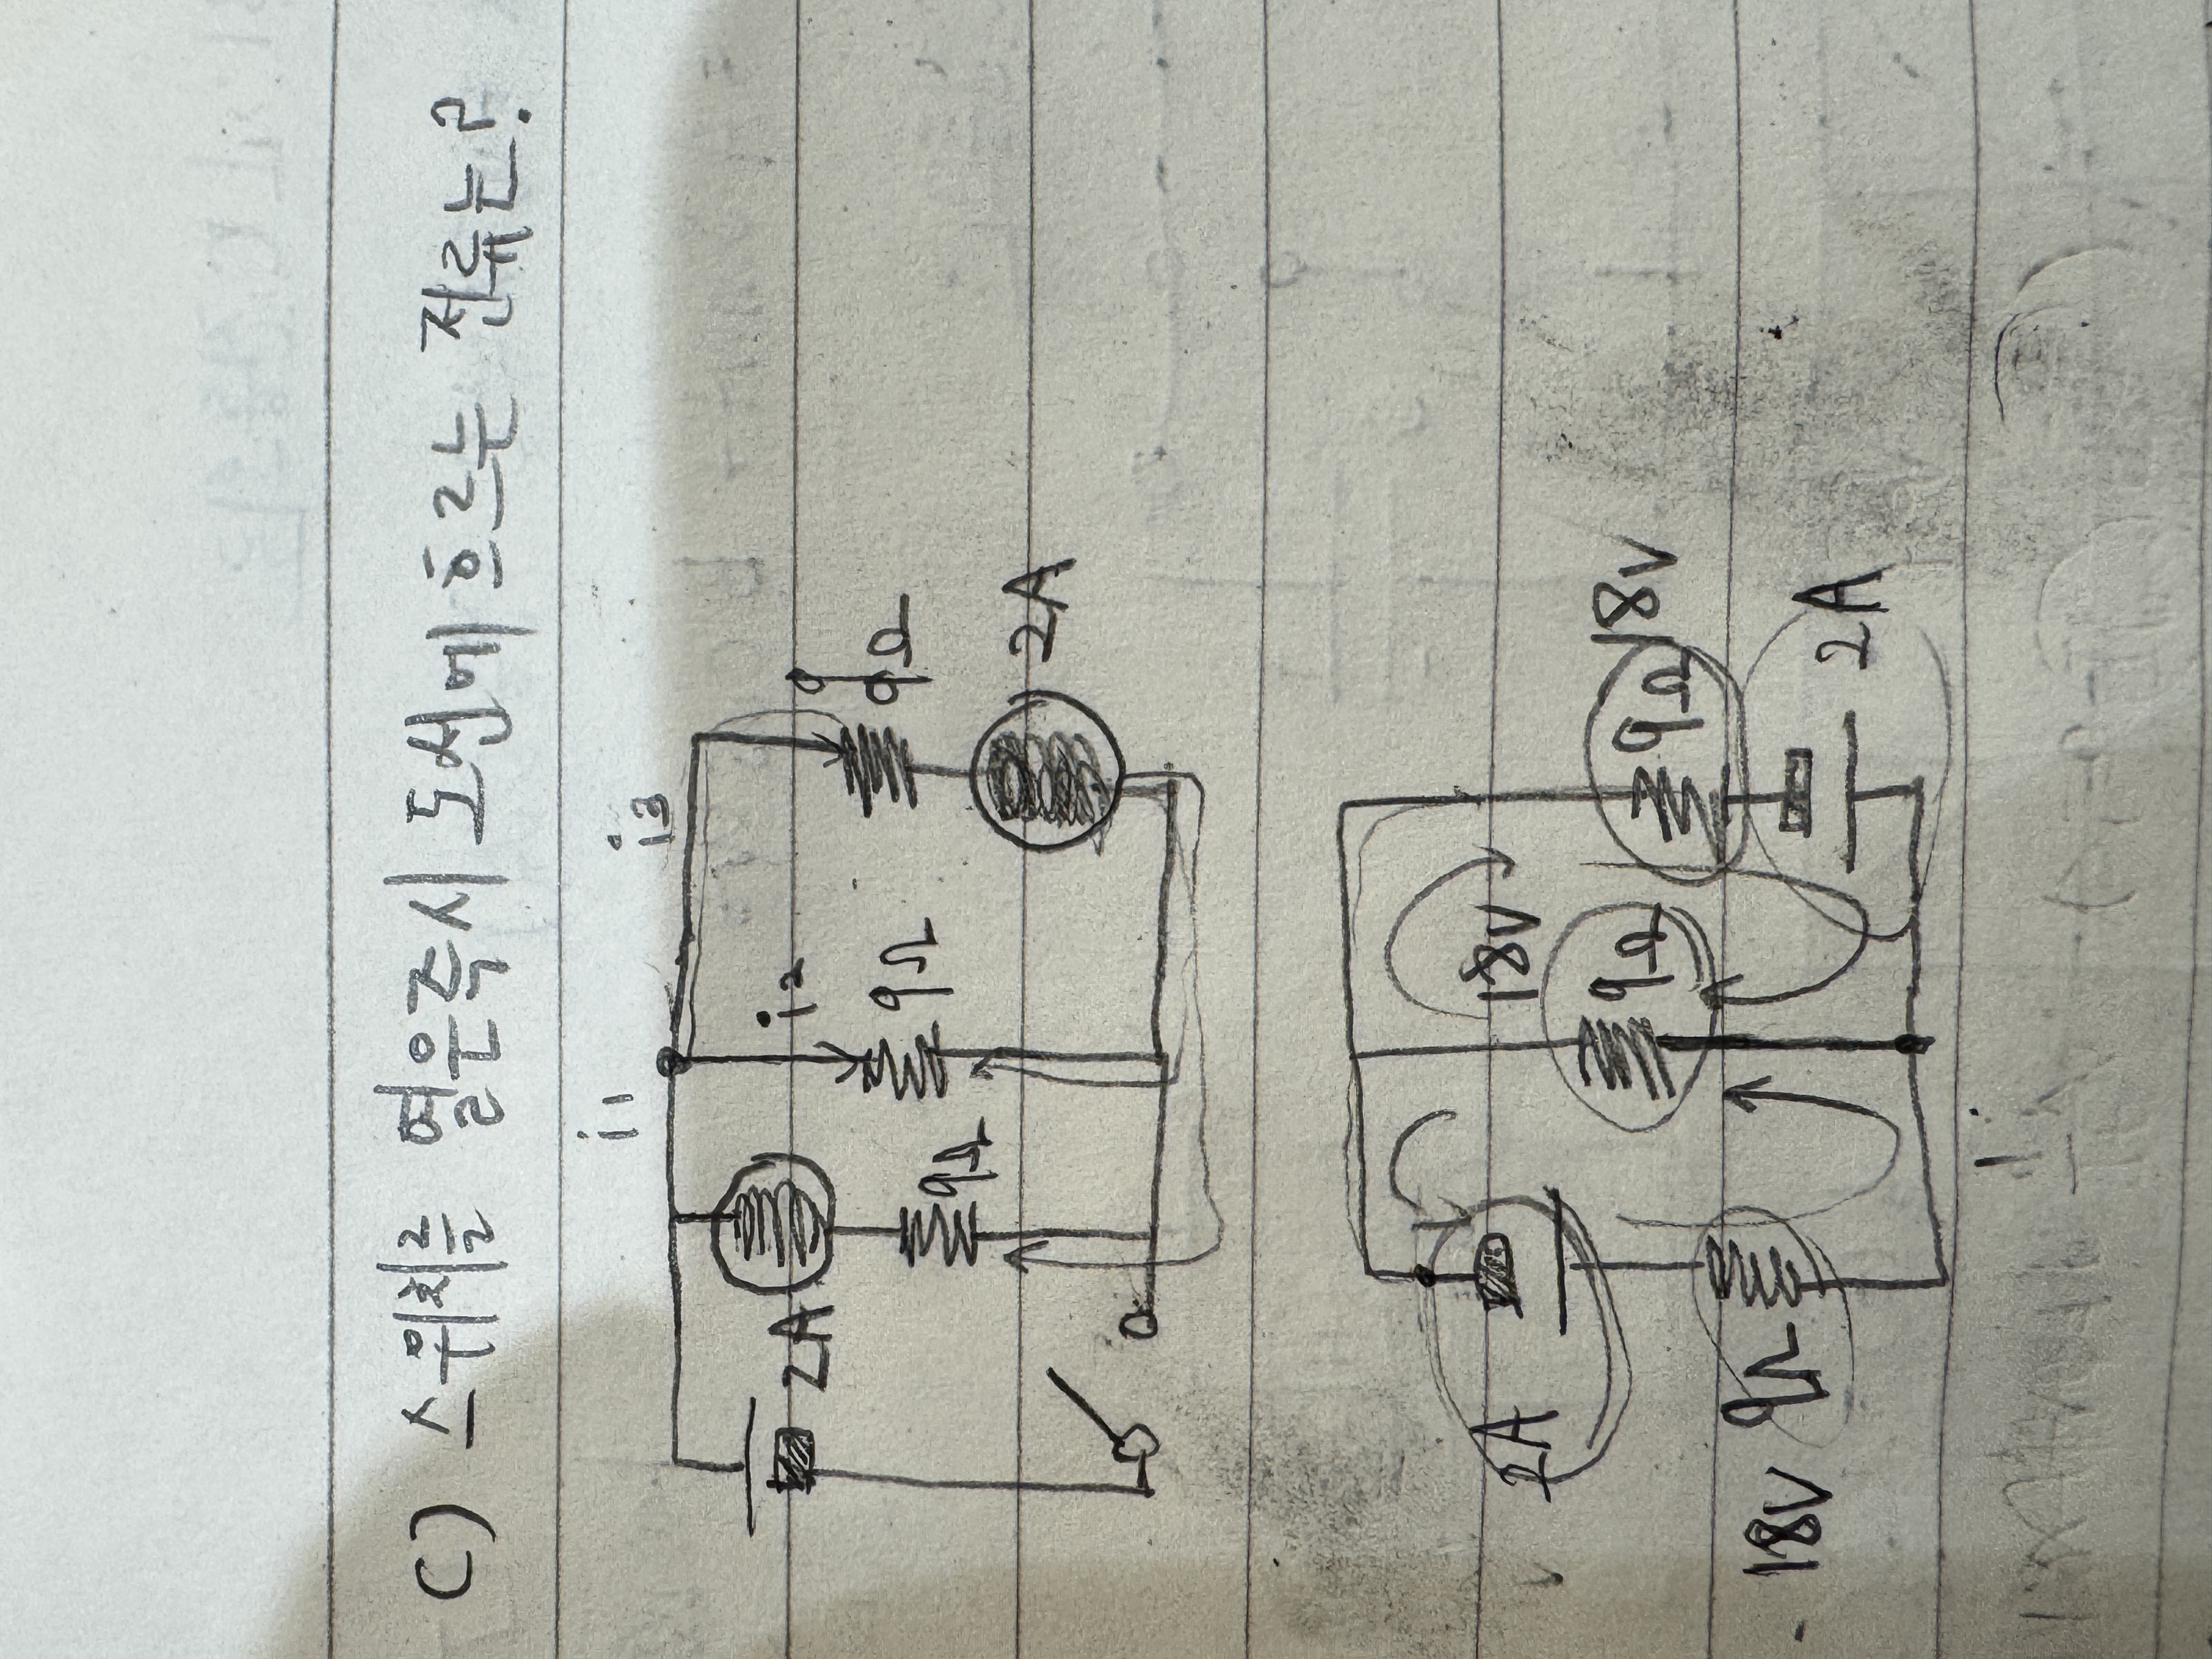 C) 스위치를 열은즉시 도선에 흐르는 전류는?
i1 i3
2A i2
9Ω 9Ω 9Ω
2A
2A 18V 18V
9Ω 9Ω
-18V 9Ω 2A
i